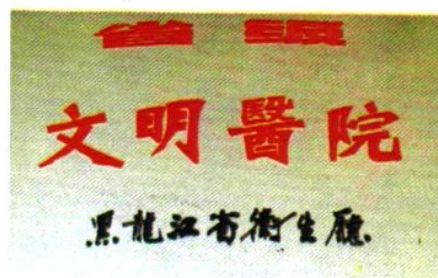 省級
文明醫院
黑龍江省衛生廳